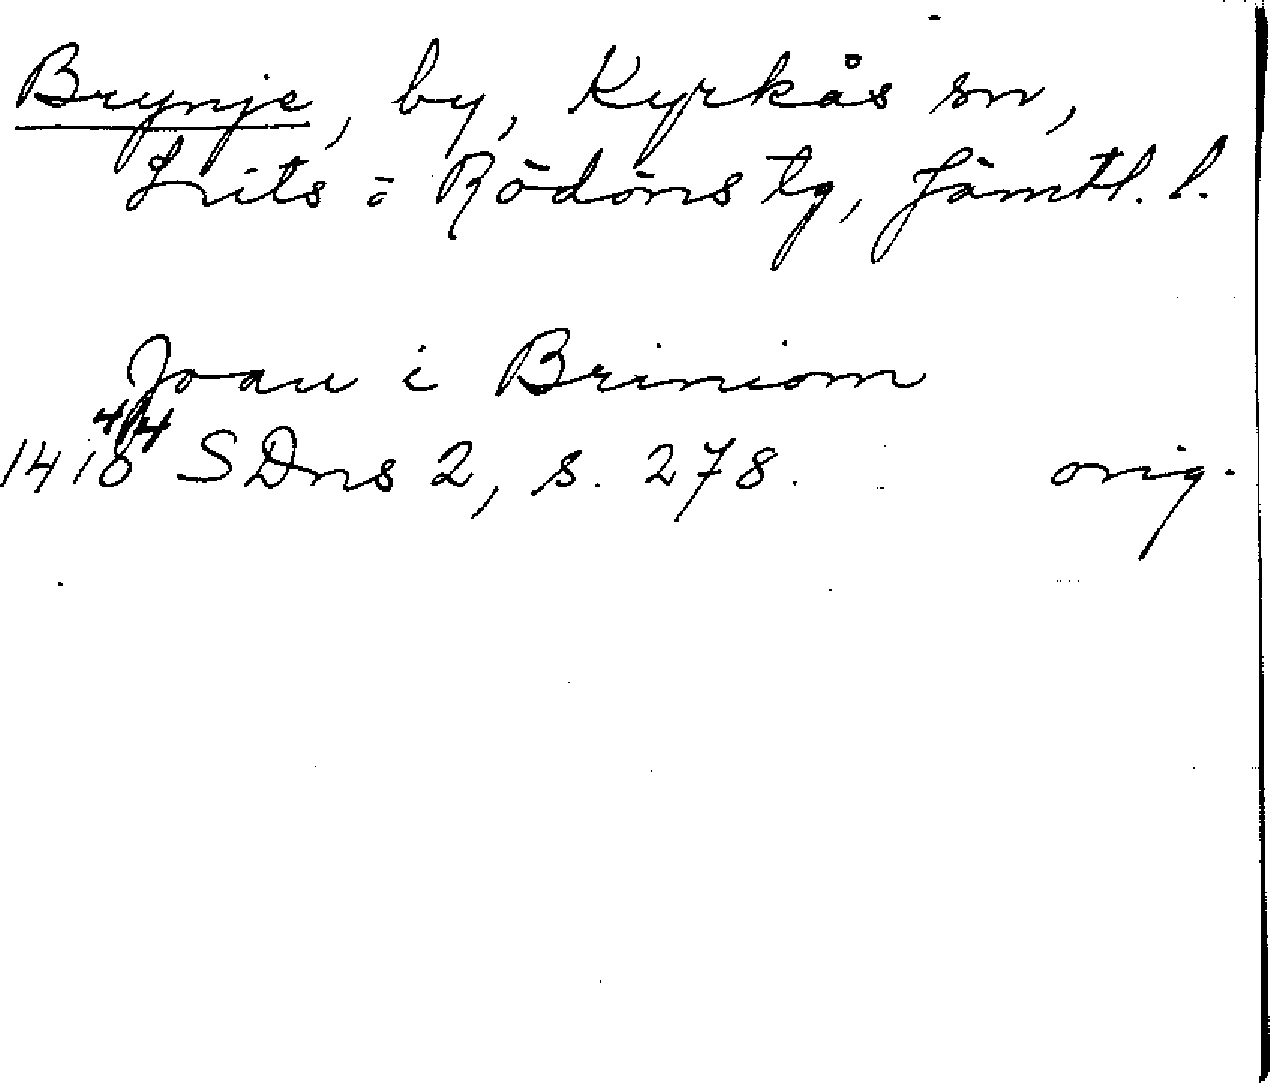 Brynje, by, Kyrkås sn,
Lits o Rödöns tg, Jämtl. l.
Joan i Briniom
1418 4/4 SDns 2, s. 278. orig.